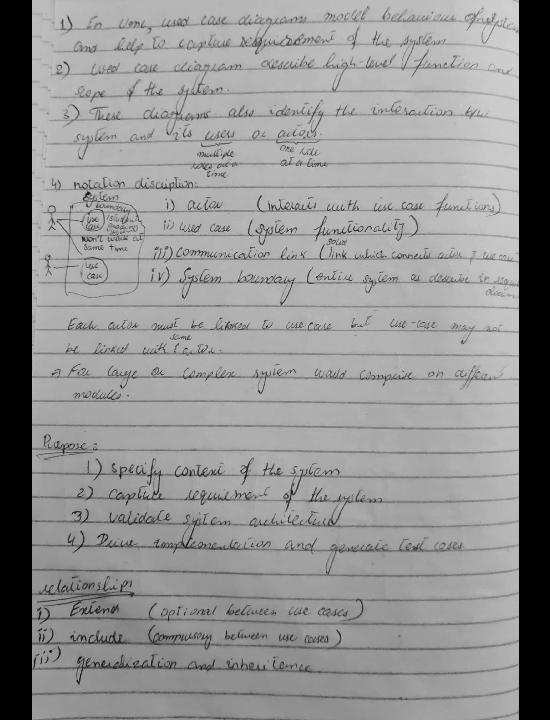 1) In UML, used case diagrams model behaviour of system
and help to capture requirement of the system
2) used case diagram describe high-level function and
scope of the system.
3) These diagrams also identify the interaction b/w
system and its users or actors.
multiple roles at a time
one role at a time
4) notation discription:
System boundary
use case
won't work at same time
use case
i) actor (interacts with use case functions)
ii) used case (system functionality)
iii) communication link (link which connects actor & use case
iv) System boundary (entire system as describe in
Each actor must be linked to use case but use-case may not
be linked with actor.
some
→ For large or complex system would comprise on different
modules.
Purpose:
1) specify context of the system
2) capture requirement of the system
3) validate system architecture
4) Drive implementation and generate test cases
relationships
i) Extend (optional between use cases)
ii) include (compulsory between use cases)
iii) generalization and inheritance